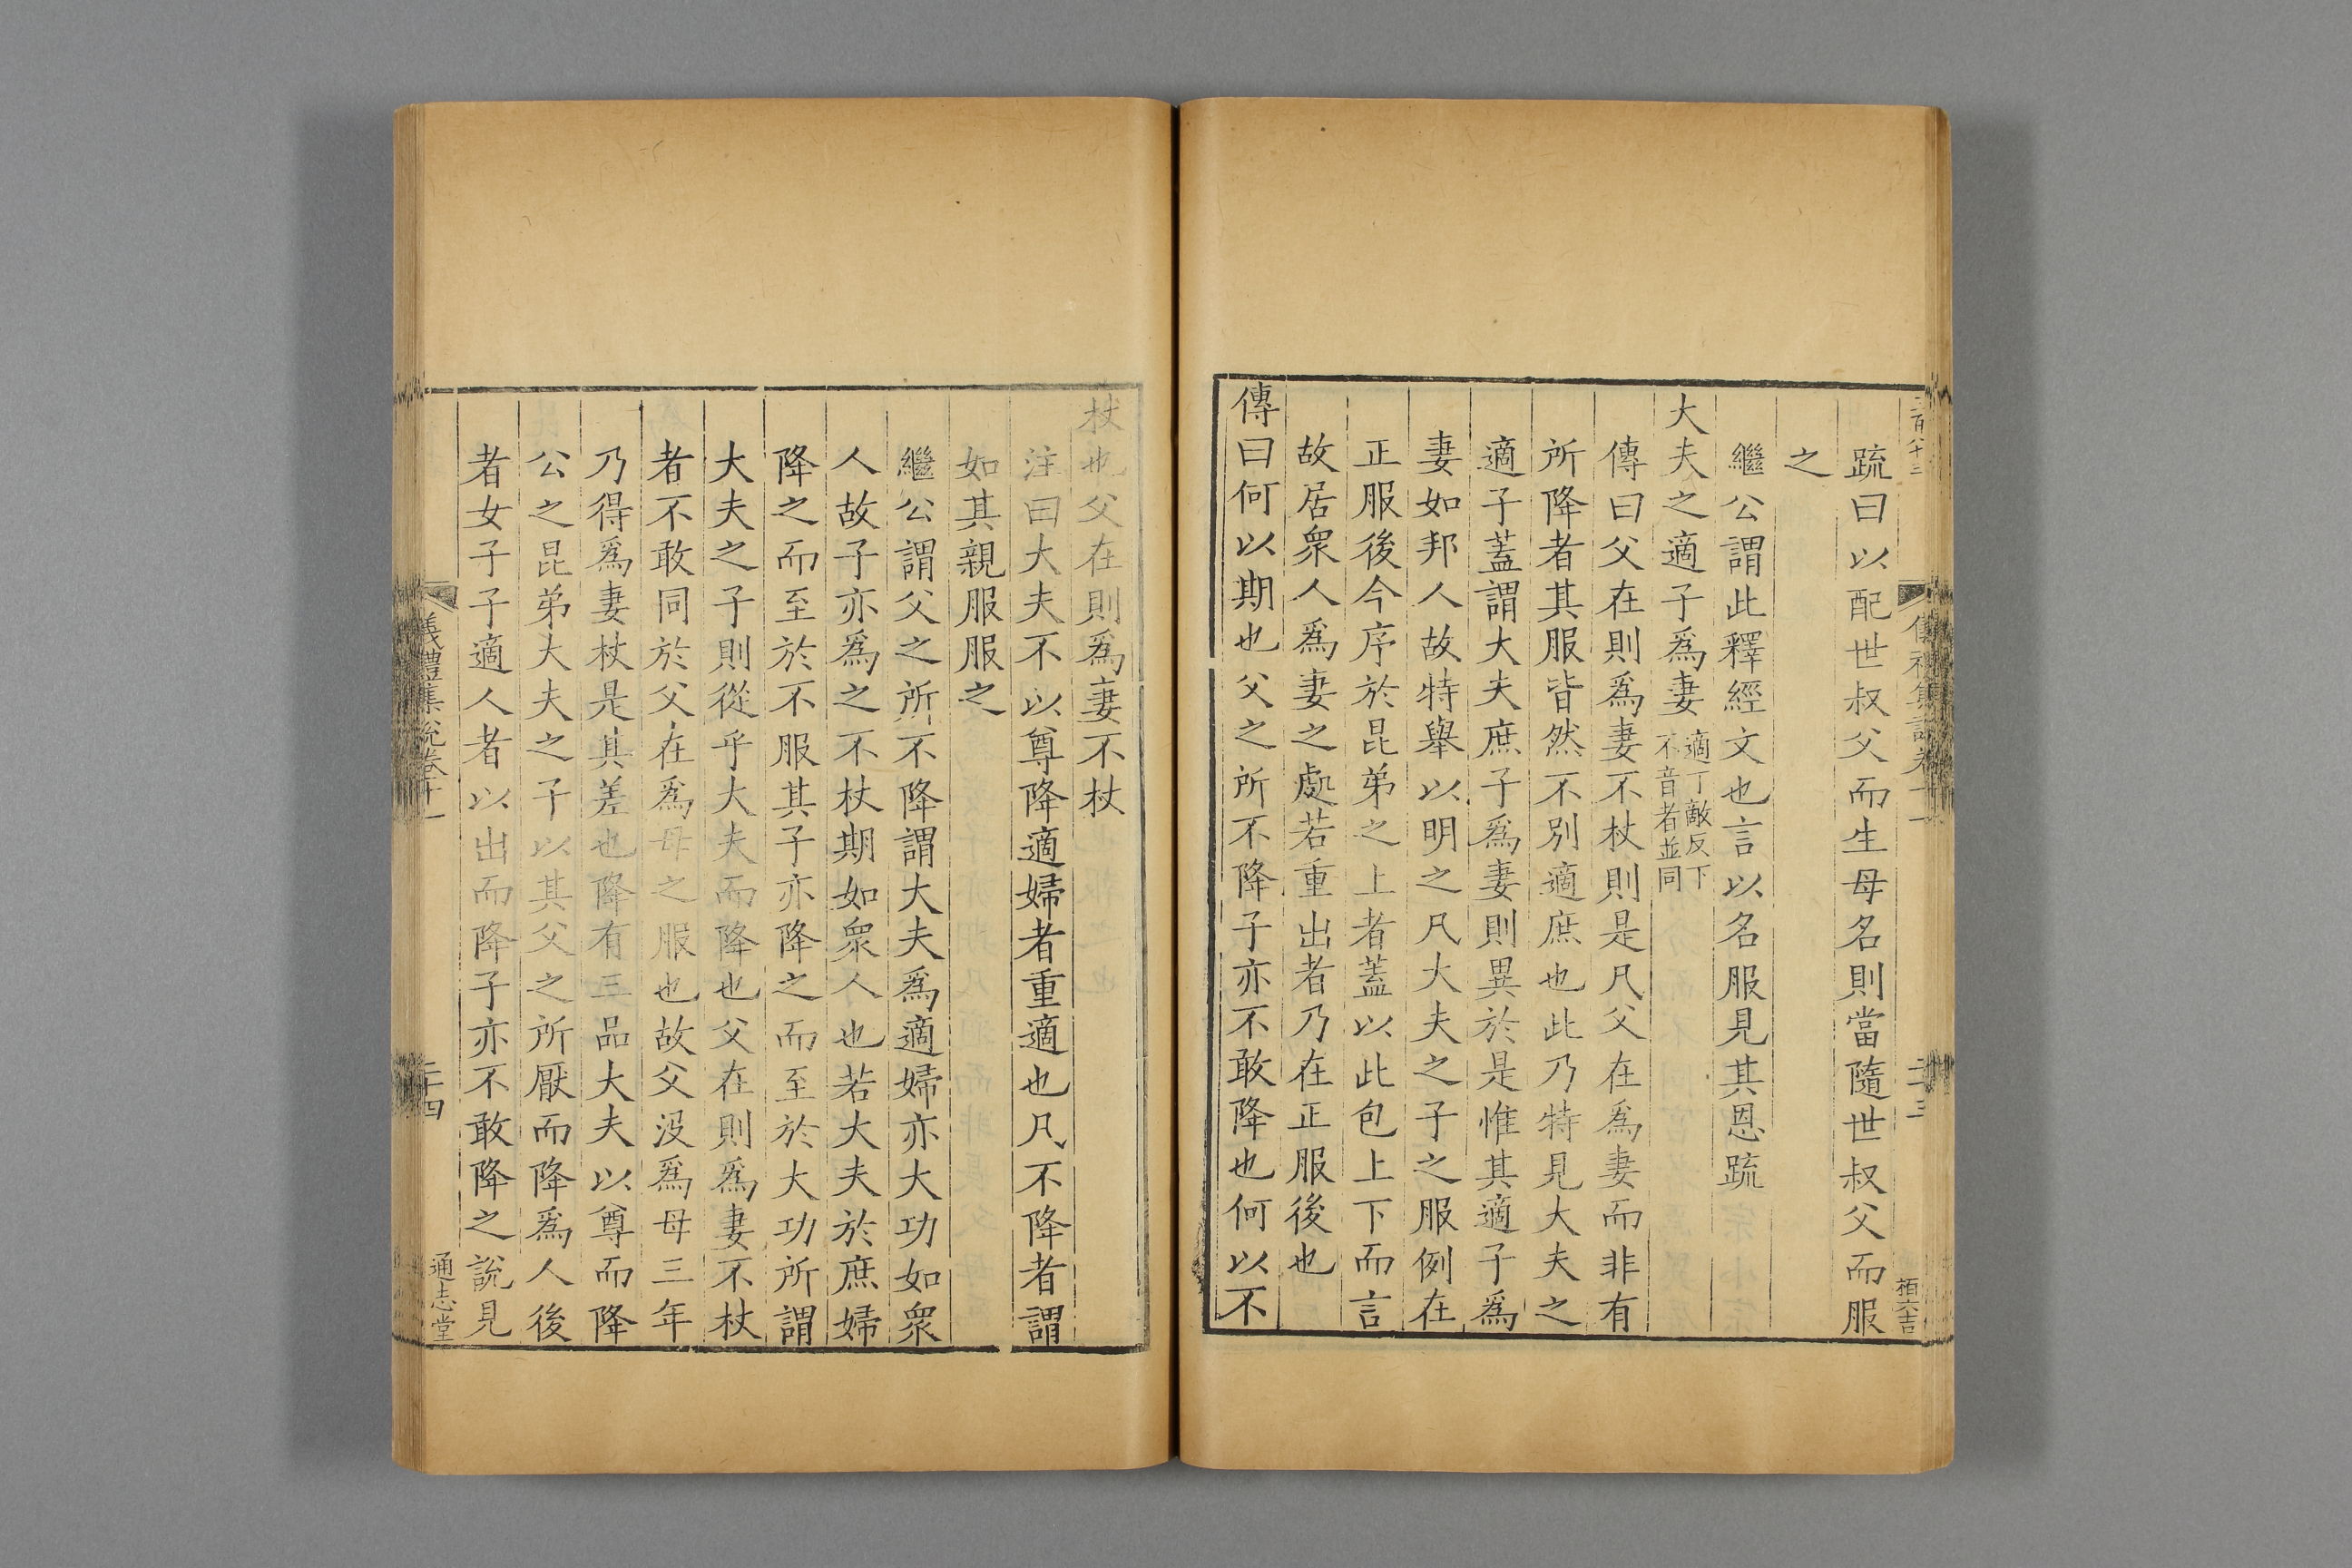 疏曰以配世叔父而生母名則當隨世叔父而服
之
繼公謂此釋經文也言以名服見其恩疏
大夫之適子爲妻適丁敵反下不音者並同
傳曰父在則爲妻不杖則是凡父在爲妻而非有
所降者其服皆然不別適庶也此乃特見大夫之
適子蓋謂大夫庶子爲妻則異於是惟其適子爲
妻如邦人故特舉以明之凡大夫之子之服例在
正服後今序於昆弟之上者蓋以此包上下而言
故居衆人爲妻之處若重出者乃在正服後也
傳曰何以期也父之所不降子亦不敢降也何以不
杖也父在則爲妻不杖
注曰大夫不以尊降適婦者重適也凡不降者謂
如其親服服之
繼公謂父之所不降謂大夫爲適婦亦大功如衆
人故子亦爲之不杖期如衆人也若大夫於庶婦
降之而至於不服其子亦降之而至於大功所謂
大夫之子則從乎大夫而降也父在則爲妻不杖
者不敢同於父在爲母之服也故父沒爲母三年
乃得爲妻杖是其差也降有三品大夫以尊而降
公之昆弟大夫之子以其父之所厭而降爲人後
者女子子適人者以出而降子亦不敢降之說見
儀禮集說卷十一
二十四
通志堂